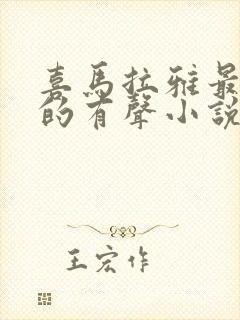 喜馬拉雅最
的有聲小說
王宏作